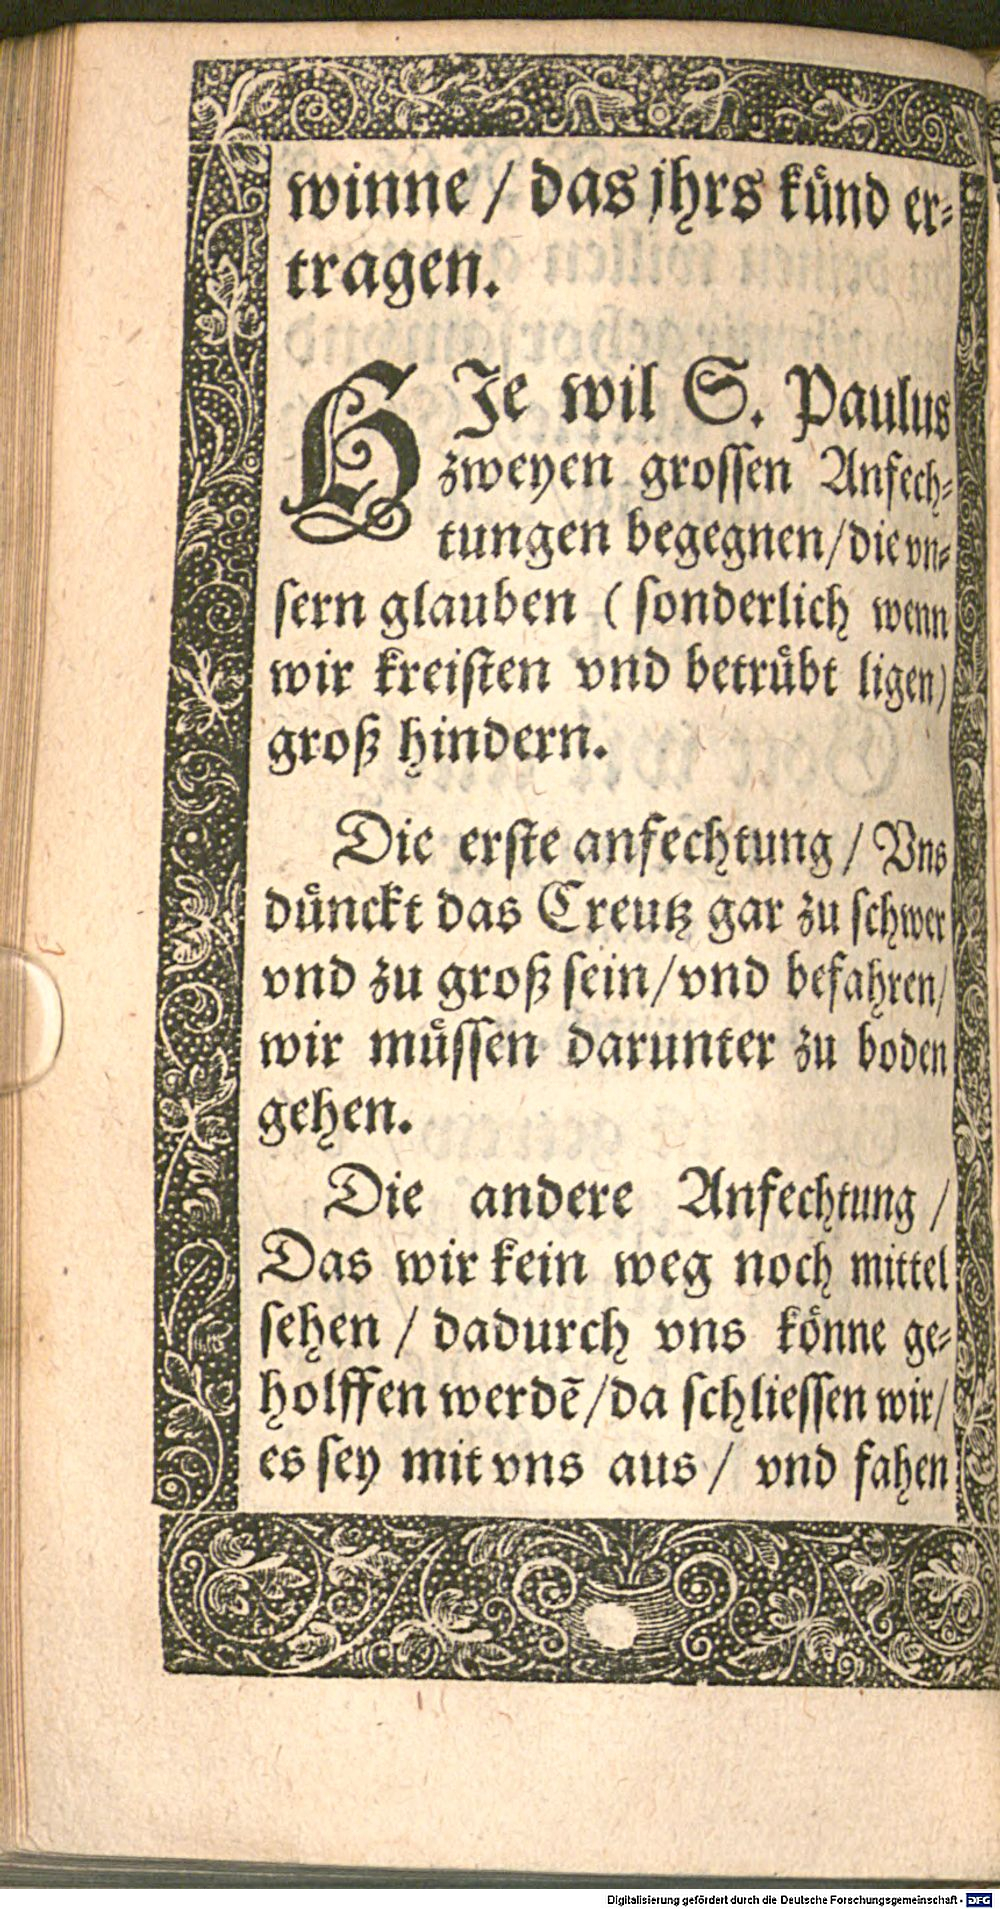 winne / das jhrs kuͤnd er⸗
tragen.
HIe wil S. Paulus
zweyen grossen Anfech⸗
tungen begegnen/die vn⸗
sern glauben ( sonderlich wenn
wir kreisten vnd betruͤbt ligen)
groß hindern.
Die erste anfechtung / Vns
duͤnckt das Creutz gar zu schwer
vnd zu groß sein/vnd befahren/
wir muͤssen darunter zu boden
gehen.
Die andere Anfechtung /
Das wir kein weg noch mittel
sehen / dadurch vns koͤnne ge⸗
holffen werdē/da schliessen wir/
es sey mit vns aus / vnd fahen
Digitalisierung gefördert durch die Deutsche Forschungsgemeinschaft - DFG